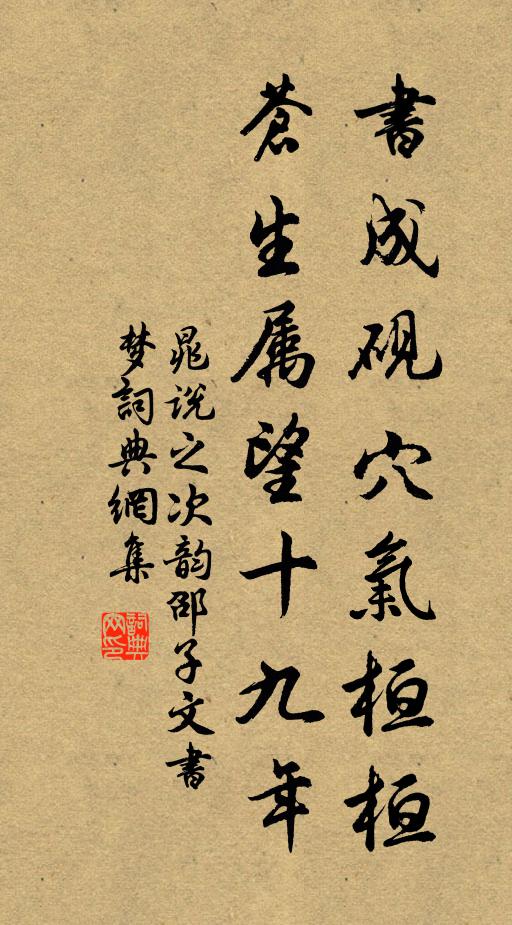 書成硯穴氣桓桓
蒼生属望十九年
晁说之次韵邵子文書
梦詞典網集
詞典網印